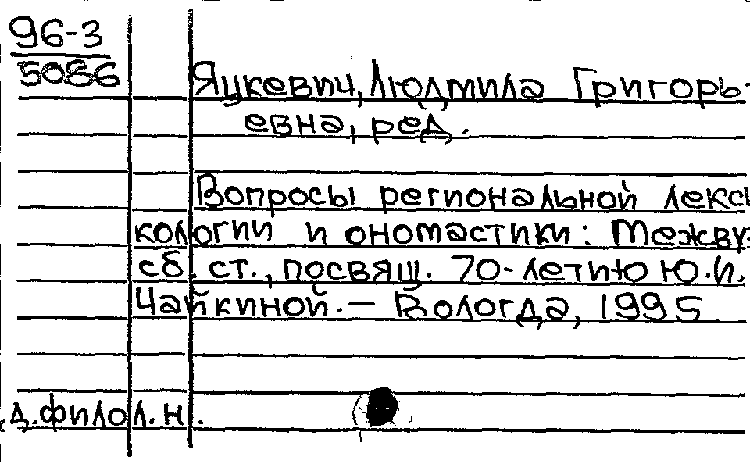 96-3
5086
Яцкевич, Людмила Григорь-
евна, ред.
Вопросы региональной лекси
кологии и ономастики: Межвуз.
сб. ст., посвящ. 70-летию Ю.И.
Чайкиной. – Вологда, 1995
д.филол.н.